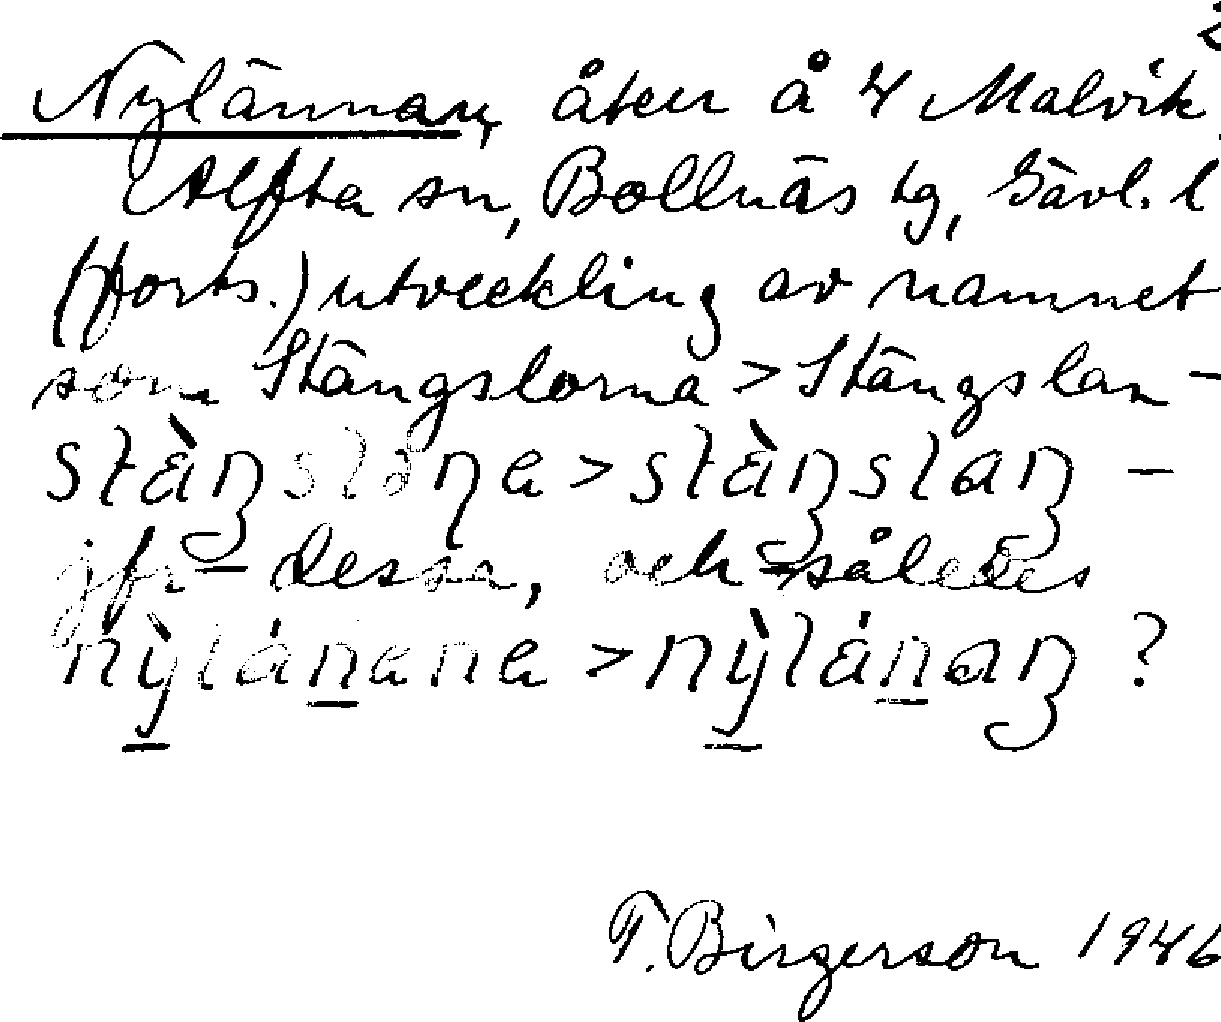 2
Nylännan, åker å 4 Malvik,
Alfta sn, Bollnäs tg, Gävl. l
(forts.) utveckling av namnet
som Stängslorna > Stängslan –
stàŋslöna > stàŋslaŋ –
jfr – dessa, och således
nỳlánana > nỳlánaŋ ?
F. Birgerson 1946